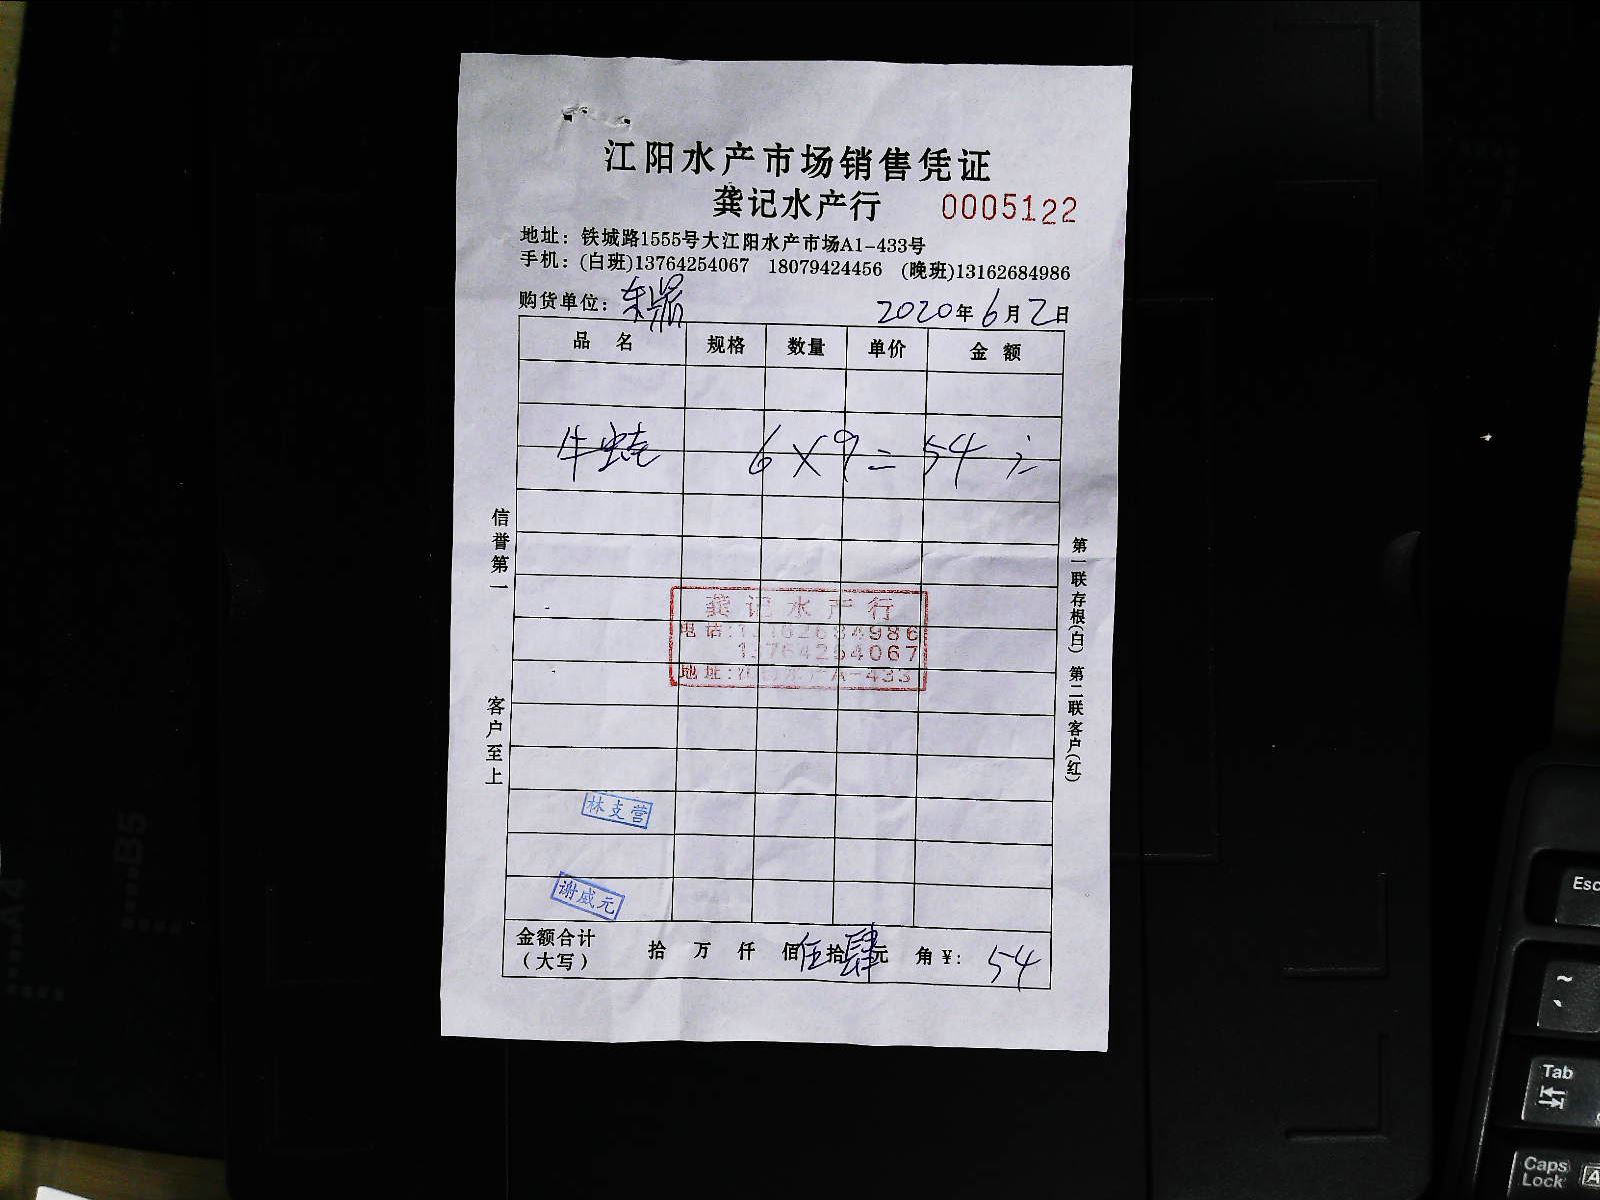 江阳水产市场销售凭证
龚记水产行 0005122
地址：铁城路1555号大江阳水产市场A1-433号
手机：(白班)13764254067 18079424456 (晚班)13162684986
购货单位：东鼎 2020年6月2日
品 名 规格 数量 单价 金 额
牛蛙 6×9=54元
信誉第一
客户至上
第一联存根(白) 第二联客户(红)
龚记水产行
电话:13162684986
13764254067
地址:江阳水产A-433
林支营
谢威元
金额合计（大写） 拾 万 仟 佰伍拾肆元 角 ¥: 54
A4
B5
Esc
~
Tab
Caps Lock
A